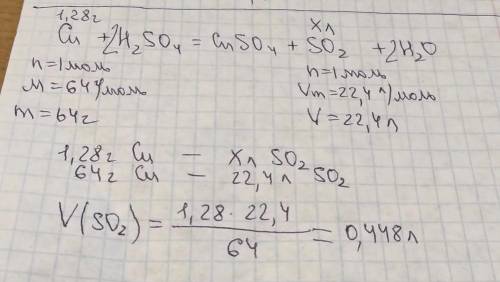 1,28г хл
Cu + 2H₂SO₄ = CuSO₄ + SO₂ + 2H₂O
n = 1 моль n = 1 моль
M = 64 г/моль Vm = 22,4 л/моль
m = 64г V = 22,4 л
1,28г Cu — хл SO₂
64г Cu — 22,4 л SO₂
V(SO₂) = 1,28 · 22,4 / 64 = 0,448л